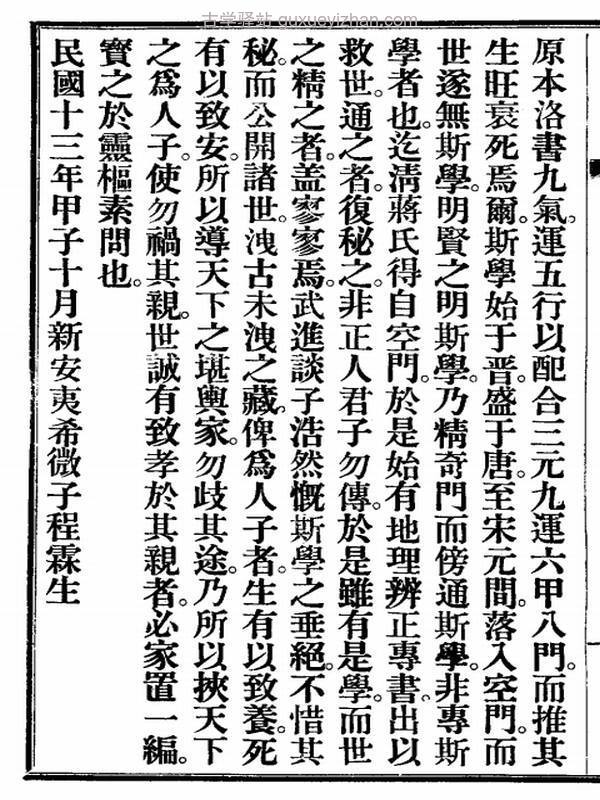 古学驿站 guxueyizhan.com
原本洛書九氣。運五行以配合三元九運六甲八門。而推其
生旺衰死焉爾。斯學始于晋。盛于唐。至宋元間。落入空門。而
世遂無斯學。明賢之明斯學。乃精奇門而傍通斯學。非專斯
學者也。迄淸蔣氏得自空門。於是始有地理辨正專書。出以
救世。通之者。復秘之。非正人君子勿傳。於是雖有是學。而世
之精之者。盖寥寥焉。武進談子浩然。慨斯學之垂絕。不惜其
秘。而公開諸世。洩古未洩之藏。俾爲人子者。生有以致養。死
有以致安。所以導天下之堪輿家。勿歧其途。乃所以挾天下
之爲人子。使勿禍其親。世誠有致孝於其親者。必家置一編。
寶之於靈樞素問也。
民國十三年甲子十月新安夷希微子程霖生